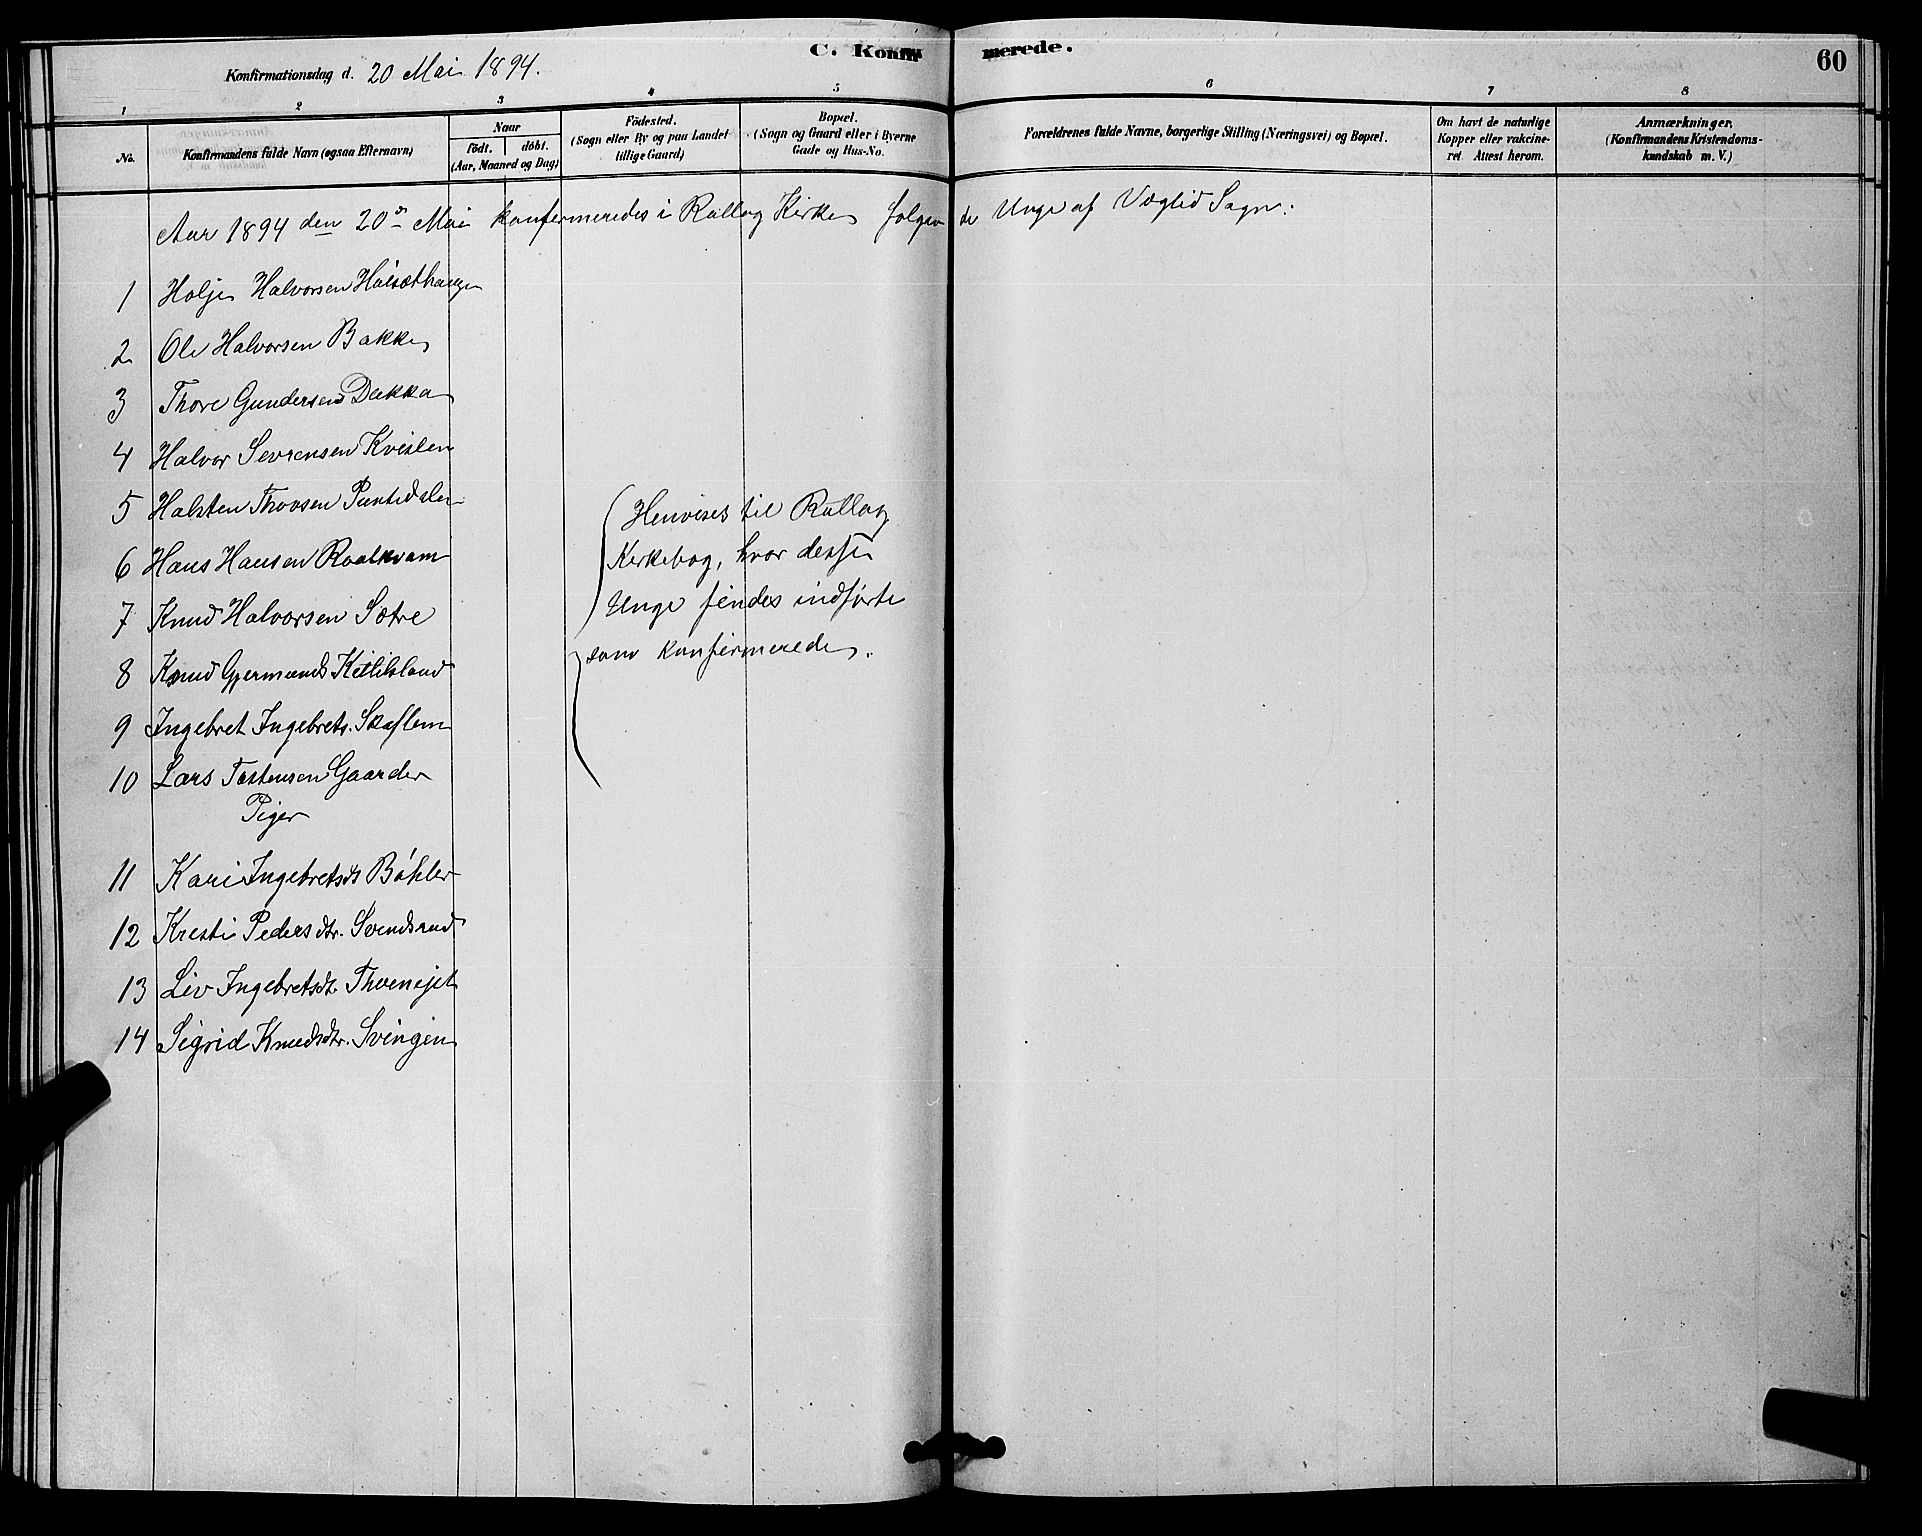 C. Konfirmerede.
60
Konfirmationsdag d. 20 Mai 1894.
1 2 3 4 5 6 7 8
No.
Konfirmandens fulde Navn (ogsaa Efternavn)
Naar
födt. döbt.
(Aar, Maaned og Dag)
Födested.
(Sogn eller By og paa Landet
tillige Gaard)
Bopæl.
(Sogn og Gaard eller i Byerne
Gade og Hus-No.
Forældrenes fulde Navne, borgerlige Stilling (Næringsvei) og Bopæl.
Om havt de naturlige
Kopper eller vakcine-
ret Attest herom.
Anmærkninger,
(Konfirmandens Kristendoms-
kundskab m. V.)
Aar 1894 den 20de Mai konfirmeredes i Rollag Kirke følgende Unge af Væglid Sogn:
1 Holje Halvorsen
2 Ole Halvorsen Bakke
3 Thore Gundersen Dakka
4 Halvor Sevrensen Kvislen
5 Halsten Thorsen
6 Hans Hansen Raakvam
7 Knud Halvorsen Sætre
8 Knud Gjermunds Ketilsland
9 Ingebret Ingebrets. Skaflem
10 Lars Tostensen Gaarder
Piger
11 Kari Ingebretsdt Böhler
12 Kristi Pedersdtr. Svendsrud
13 Liv Ingebretsdt.
14 Sigrid Knudsdtr. Svingen
Henvises til Rollag
Kirkebog, hvor disse
Unge findes indførte
som konfirmerede.